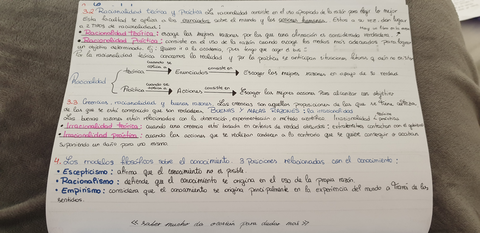 3.2 Racionalidad teórica y práctica. La racionalidad consiste en el uso adecuado de la razón para elegir lo mejor.
Esta facultad se aplica a los enunciados sobre el mundo y las acciones humanas. Estos a su vez dan lugar
a 2 tipos de racionalidad:
• Racionalidad Teórica: escoge las mejores razones por las que una afirmación es considerada verdadera.
• Racionalidad práctica: consiste en el uso de la razón cuando escoge los medios más adecuados para lograr
un objetivo determinado.
Por la racionalidad teórica conocemos la realidad y por la práctica se anticipan situaciones futuras y
Racionalidad
Teórica
cuando se aplica a
Enunciados
consiste en
Escoger las mejores razones en apoyo de la verdad
Práctica
cuando se aplica a
Acciones
consiste en
Escoger las mejores acciones para alcanzar un objetivo
3.3 Creencias, racionalidad y buenas razones. Las creencias son aquellas proposiciones de las que se tiene
de las que se está convencido que son verdaderas. BUENAS Y MALAS RAZONES: LA IRRACIONALIDAD
Las buenas razones están relacionadas con la observación, experimentación o método científico. Irracionalidad
• Irracionalidad teórica: cuando una creencia está basada en criterios de verdad
• Irracionalidad práctica: cuando las acciones que se realizan conducen a lo contrario que se quiere conseguir o acaban
suponiendo un daño para uno mismo.
4. Los modelos filosóficos sobre el conocimiento. 3 posiciones relacionadas con el conocimiento:
• Escepticismo: afirma que el conocimiento no es posible
• Racionalismo: defiende que el conocimiento se origina en el uso de la propia razón.
• Empirismo: considera que el conocimiento se origina principalmente en la experiencia del mundo a través de los
sentidos.
<< Saber mucho da ocasión para dudar más >>